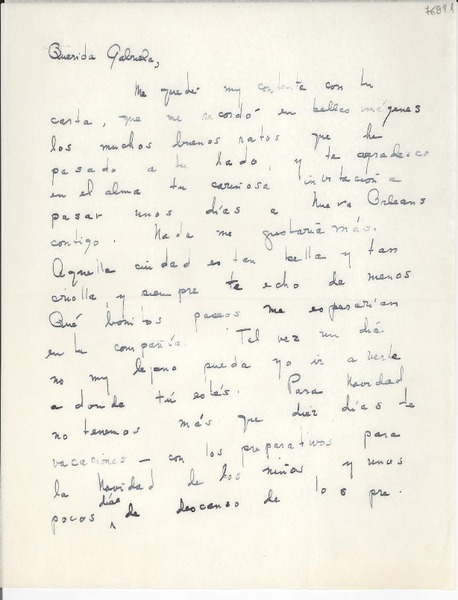 76891
Querida Gabriela,
Me quedé muy contenta con tu
carta, que me recordó en bellas imágenes
los muchos buenos ratos que he
pasado a tu lado, y te agradezco
en el alma tu cariñosa invitación a
pasar unos días a Nueva Orleans
contigo. Nada me gustaría más.
Aquella ciudad es tan bella y tan
criolla, y siempre te echo de menos
Qué bonitos paseos me esperarían
en tu compañía. Tal vez un día
no muy lejano pueda yo ir a verte
a donde tú estés. Para Navidad
no tenemos más que diez días de
vacaciones — con los preparativos para
la Navidad de los niños y unos
pocos días de descanso de los pre-